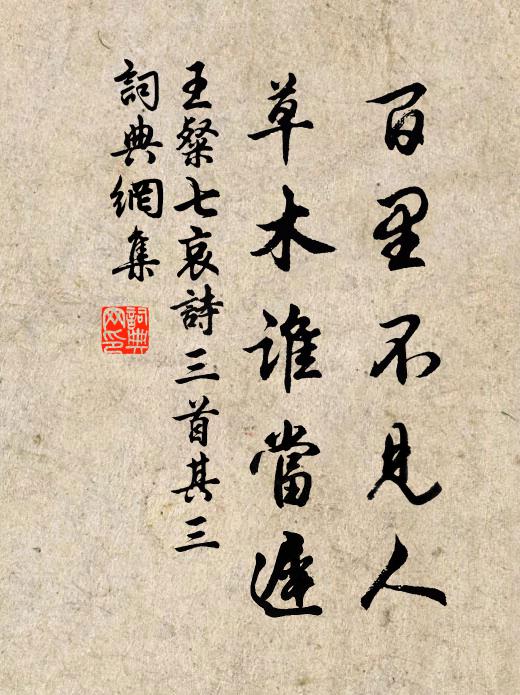 百里不見人
草木誰當遲
王粲七哀詩三首其三
詞典網集
詞典
网印